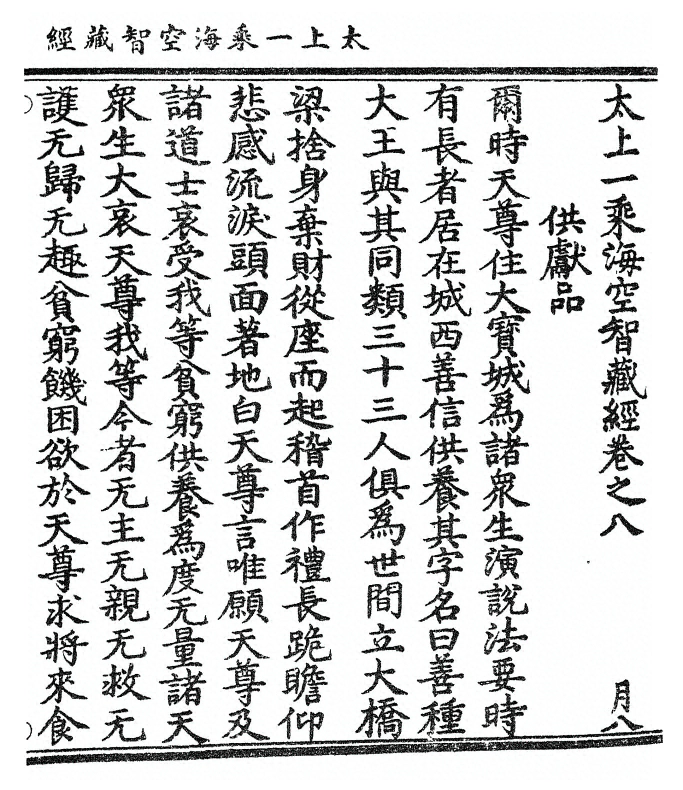 太上一乘海空智藏經
太上一乘海空智藏經卷之八
月八
供獻品
爾時天尊住大寶城爲諸衆生演説法要時
有長者居在城西善信供養其字名曰善種
大王與其同類三十三人俱爲世間立大橋
梁捨身棄財從座而起稽首作禮長跪瞻仰
悲感流淚頭面著地白天尊言唯願天尊及
諸道士哀受我等貧窮供養爲度无量諸天
衆生大哀天尊我等今者无主无親无救无
護无歸无趣貧窮饑困欲於天尊求將來食